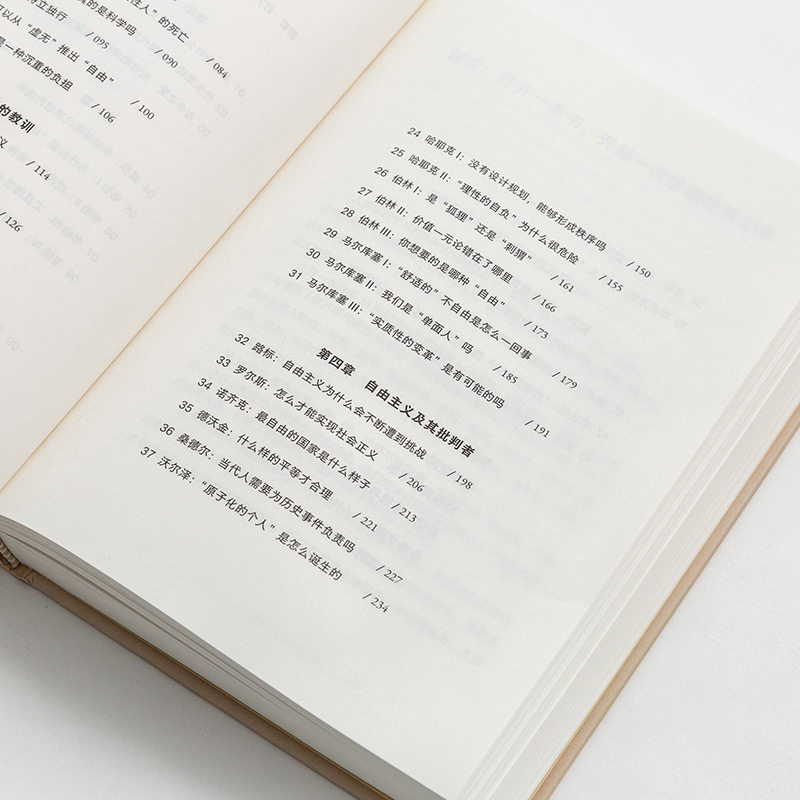 性人”的死亡 /084
的是科学吗 /090
特立独行 /095
可以从“虚无”推出“自由” /100
是一种沉重的负担 /106
的教训
义 /114
/126
24 哈耶克 I：没有设计规划，能够形成秩序吗 /150
25 哈耶克 II：“理性的自负”为什么很危险 /155
26 伯林 I：是“狐狸”还是“刺猬” /161
27 伯林 II：价值一元论错在了哪里 /166
28 伯林 III：你想要的是哪种“自由” /173
29 马尔库塞 I：“舒适的”不自由是怎么一回事 /179
30 马尔库塞 II：我们是“单面人”吗 /185
31 马尔库塞 III：“实质性的变革”是有可能的吗 /191
第四章 自由主义及其批判者
32 路标：自由主义为什么会不断遭到挑战 /198
33 罗尔斯：怎么才能实现社会正义 /206
34 诺齐克：最自由的国家是什么样子 /213
35 德沃金：什么样的平等才合理 /221
36 桑德尔：当代人需要为历史事件负责吗 /227
37 沃尔泽：“原子化的个人”是怎么诞生的 /234